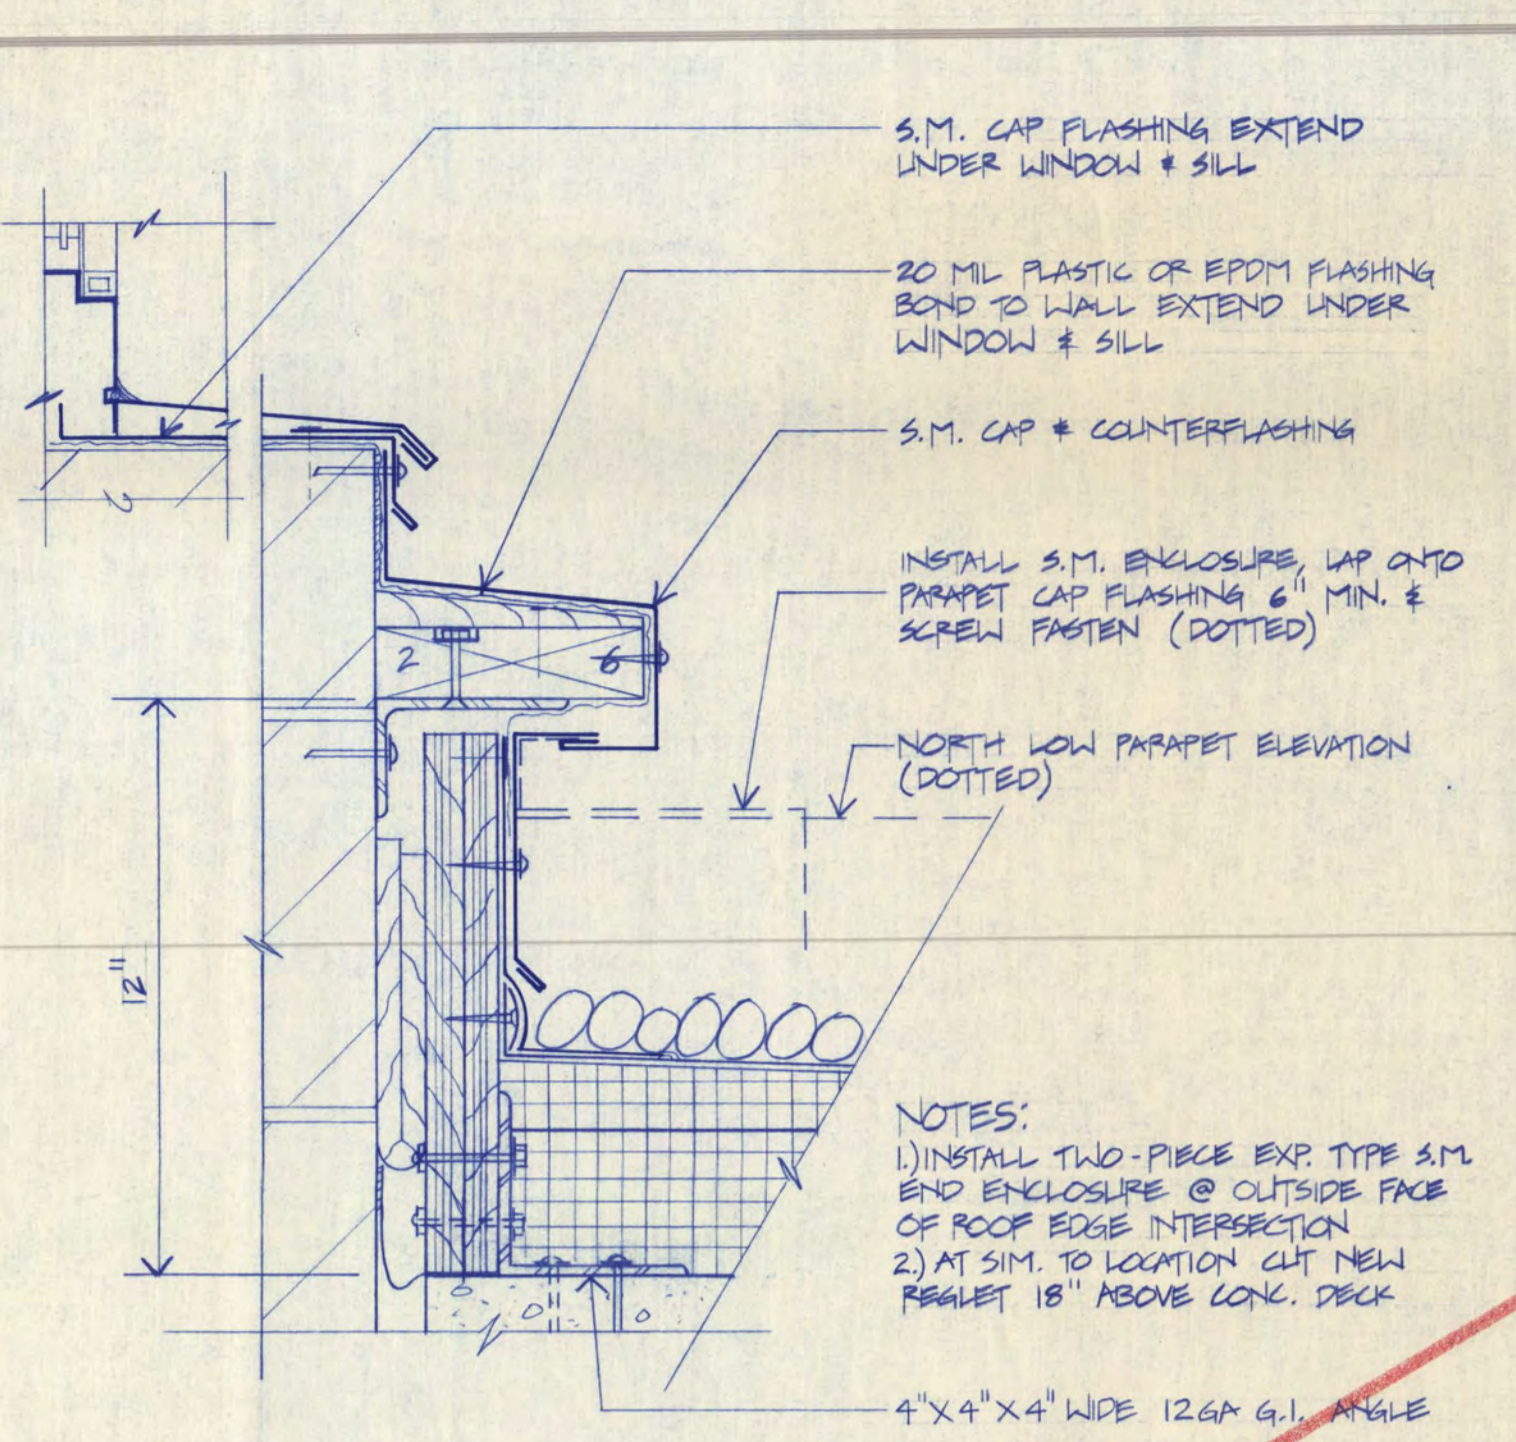 S.M. CAP FLASHING EXTEND
UNDER WINDOW & SILL
20 MIL PLASTIC OR EPDM FLASHING
BOND TO WALL EXTEND UNDER
WINDOW & SILL
S.M. CAP & COUNTERFLASHING
INSTALL S.M. ENCLOSURE, LAP ONTO
PARAPET CAP FLASHING 6" MIN. &
SCREW FASTEN (DOTTED)
2 6
NORTH LOW PARAPET ELEVATION
(DOTTED)
12"
NOTES:
1.) INSTALL TWO-PIECE EXP. TYPE S.M.
END ENCLOSURE @ OUTSIDE FACE
OF ROOF EDGE INTERSECTION
2.) AT SIM. TO LOCATION CUT NEW
REGLET 18" ABOVE CONC. DECK
4"X4"X4" WIDE 12GA G.I. ANGLE